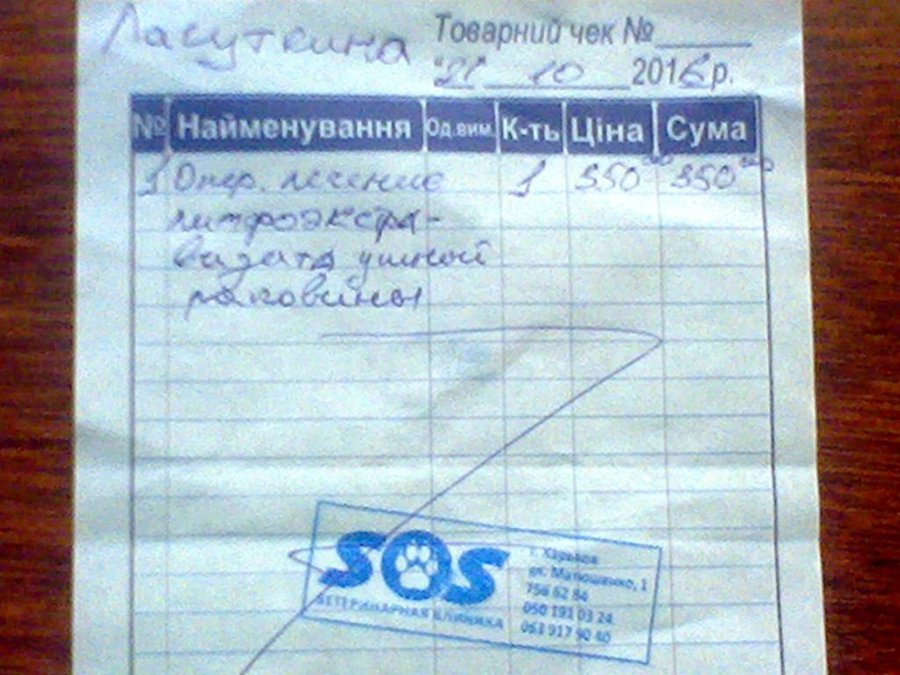 Ласуткина
Товарний чек №
"21" 10 2016 р.
№ Найменування Од.вим. К-ть Ціна Сума
1 Опер. лечение 1 350 350
лимфоэкстра-
вазата ушной
раковины
SOS
ВЕТЕРИНАРНАЯ КЛИНИКА
г. Харьков
ул. Матюшенко, 1
756 62 84
050 191 03 24
063 917 90 40